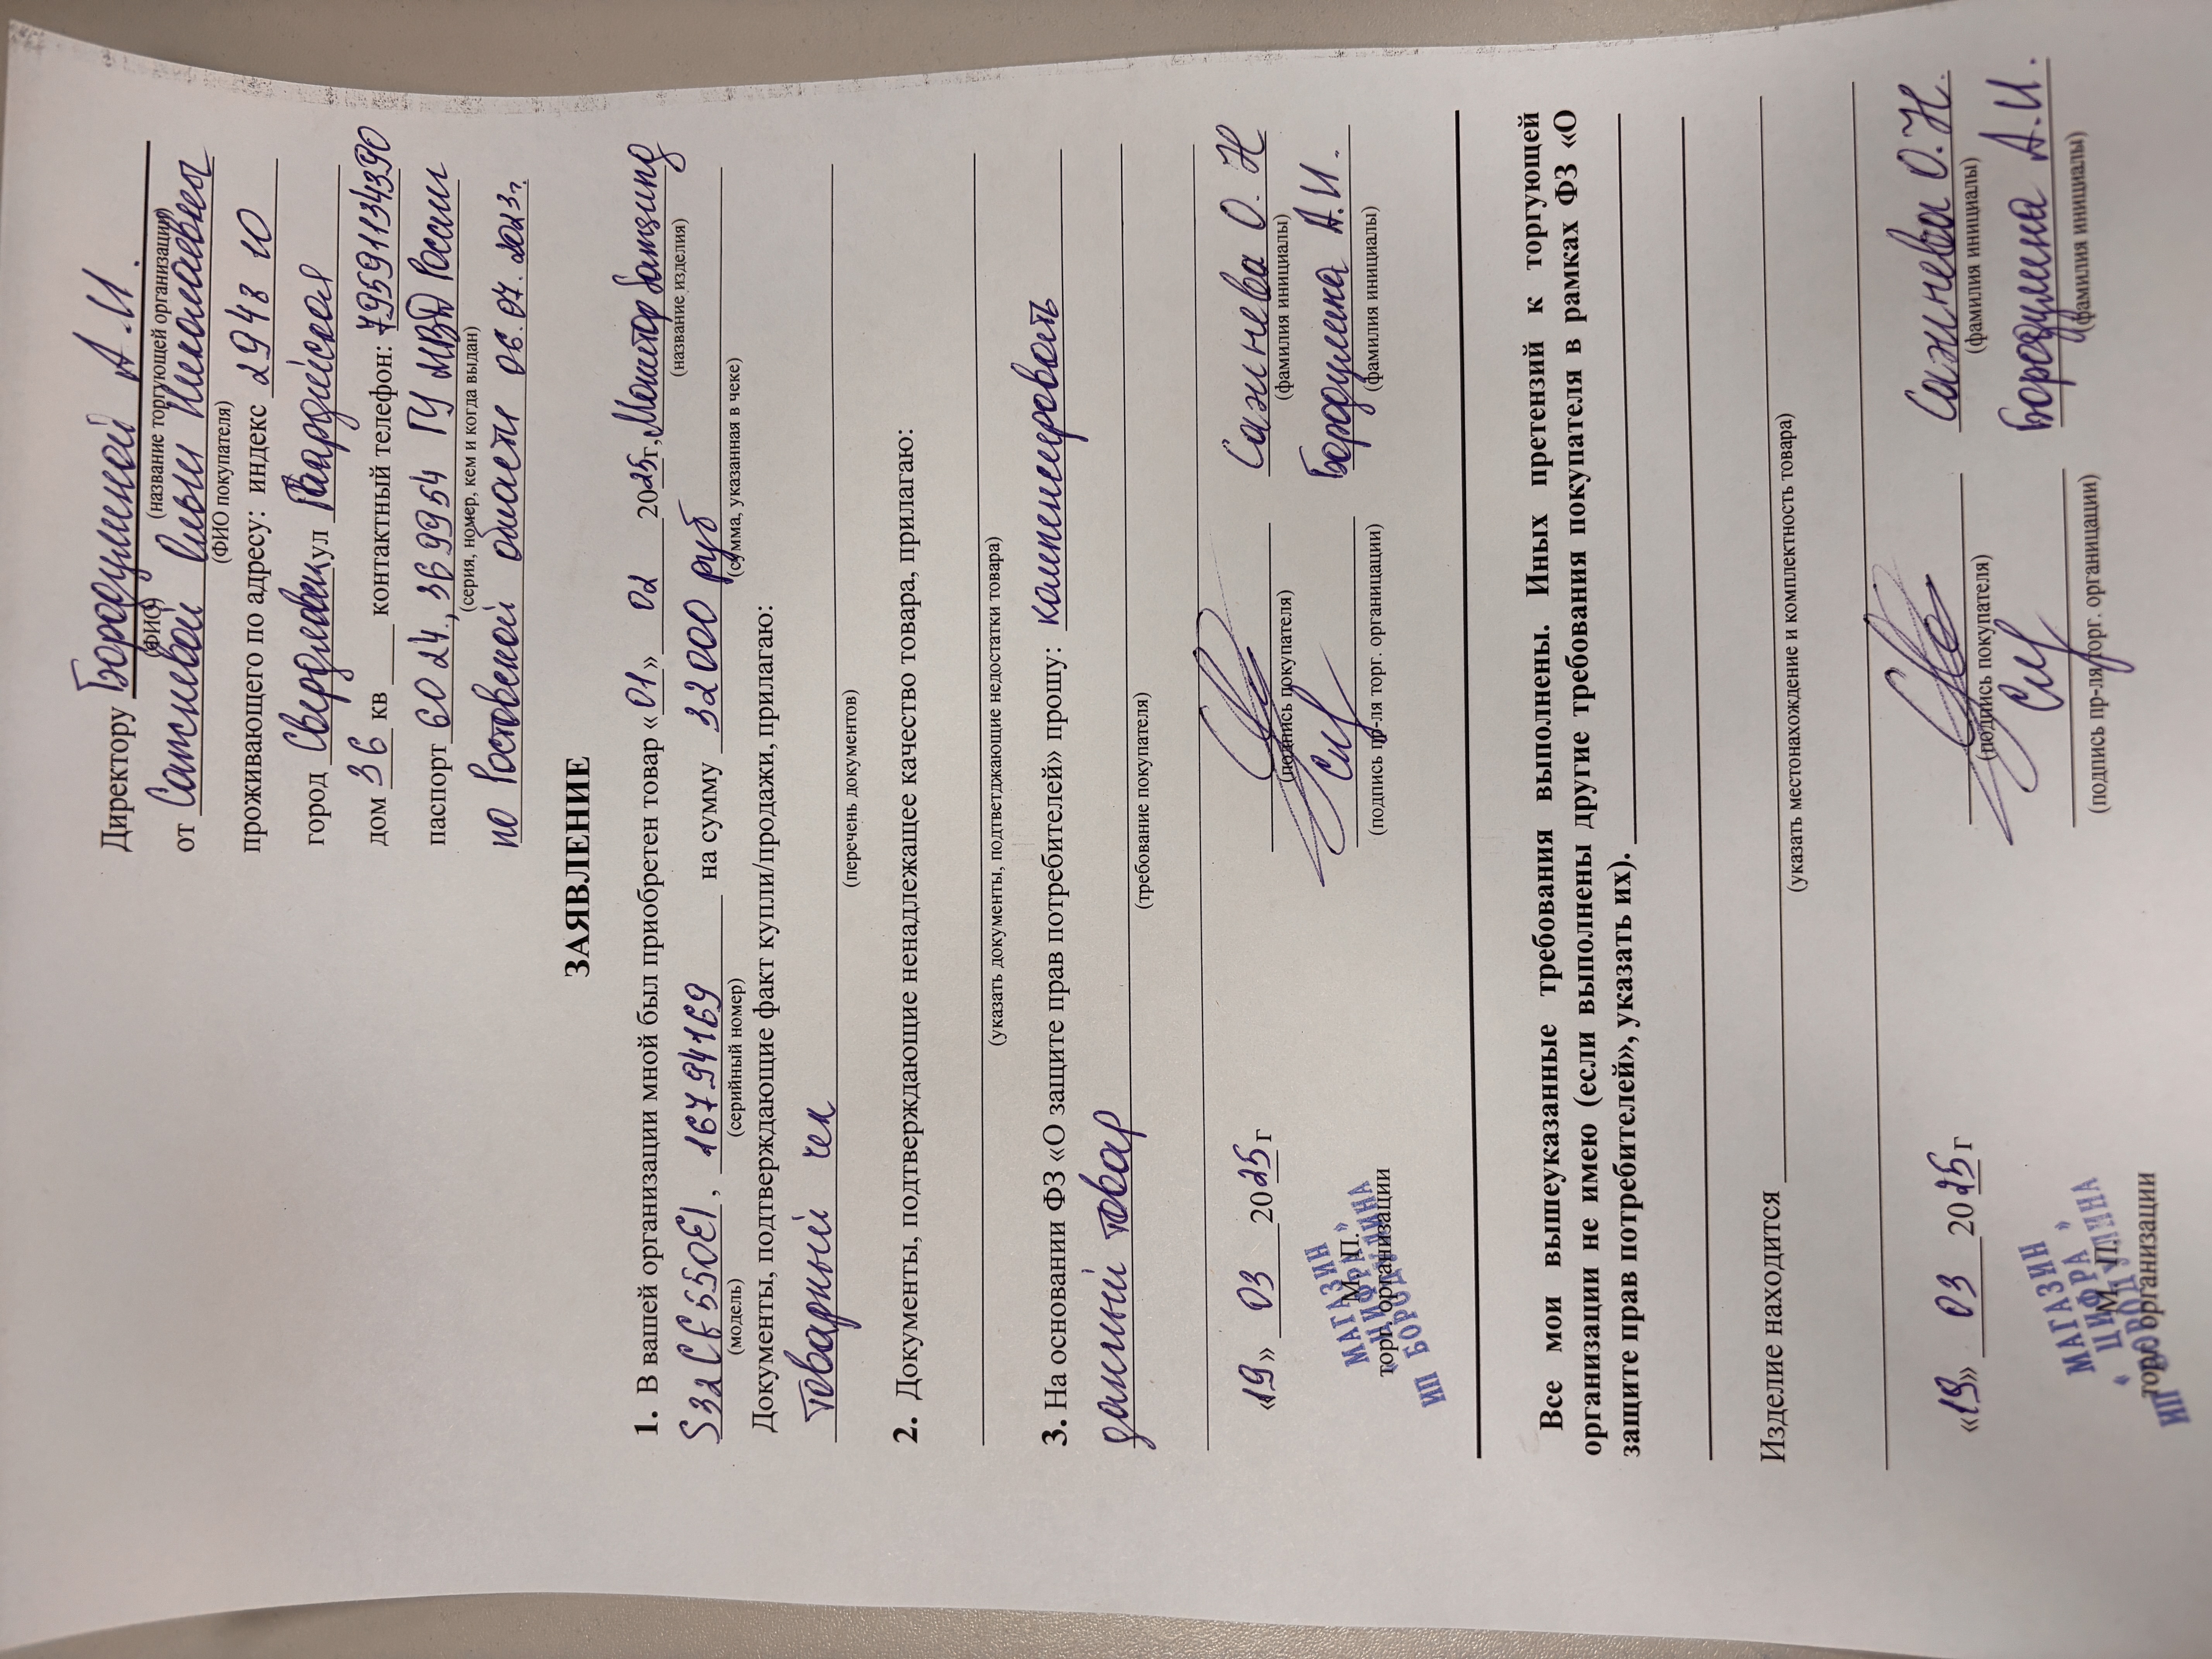 Директору Бородулиной А.И.
(ФИО) (название торгующей организации)
от Сажневой Ольги Николаевны
(ФИО покупателя)
проживающего по адресу: индекс 2948 10
город Свердловск ул Гвардейская
дом 36 кв ____ контактный телефон: 79591134390
паспорт 60 24, 369954 ГУ МВД России
(серия, номер, кем и когда выдан)
по Ростовской области 06.07.2023г.
ЗАЯВЛЕНИЕ
1. В вашей организации мной был приобретен товар «01» 02 2025г, Монитор
(название изделия)
S32CF550EI, 16794169 на сумму 32000 руб
(модель) (серийный номер) (сумма, указанная в чеке)
Документы, подтверждающие факт купли/продажи, прилагаю:
Товарный чек
(перечень документов)
2. Документы, подтверждающие ненадлежащее качество товара, прилагаю:
(указать документы, подтветджающие недостатки товара)
3. На основании ФЗ «О защите прав потребителей» прошу: компенсировать
данный товар
(требование покупателя)
«19» 03 2025г Сажнева О.Н
(подпись покупателя) (фамилия инициалы)
Бородулина А.И.
(подпись пр-ля торг. органицации) (фамилия инициалы)
М. П.
торг. организации
МАГАЗИН
"ЦИФРА"
ИП БОРОДУЛИНА
Все мои вышеуказанные требования выполнены. Иных претензий к торгующей
организации не имею (если выполнены другие требования покупателя в рамках ФЗ «О
защите прав потребителей», указать их).
Изделие находится
(указать местонахождение и комплектность товара)
«19» 03 2025г Сажнева О.Н.
(подпись покупателя) (фамилия инициалы)
Бородулина А.И.
(подпись пр-ля торг. органицации) (фамилия инициалы)
М. П.
торг. организации
МАГАЗИН
"ЦИФРА"
ИП БОРОДУЛИНА